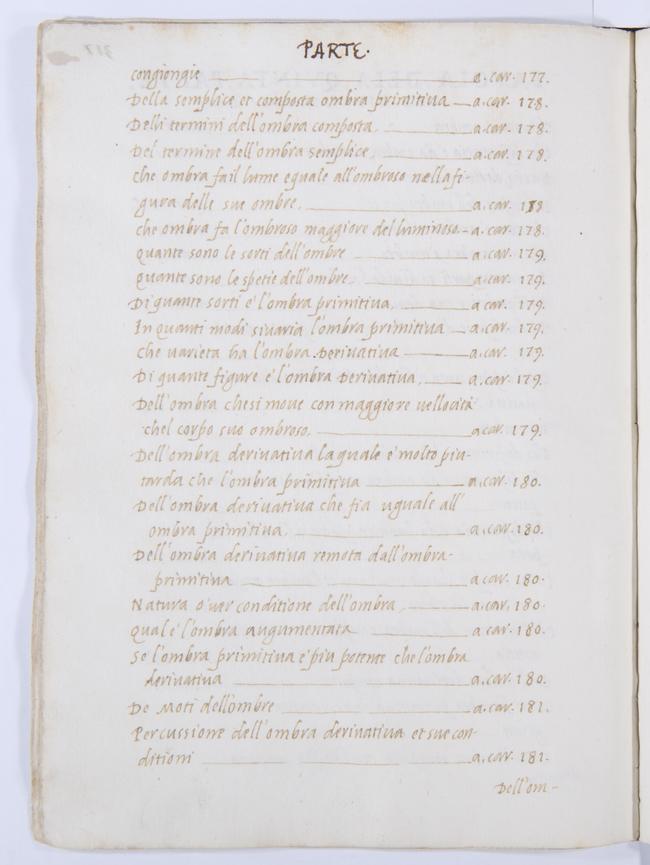 PARTE.
congiongie a. car. 177.
Della semplice et composta ombra primitiva a. car. 178.
Delli termini dell'ombra composta a. car. 178.
Del termine dell'ombra semplice a. car. 178.
che ombra fa il lume eguale all'ombroso nella fi
gura delle sue ombre. a. car. 178
che ombra fa l'ombroso maggiore del luminoso. a. car. 178.
quante sono le sorti dell'ombre a. car. 179.
quante sono le spetie dell'ombre a. car. 179.
Di quante sorti e' l'ombra primitiva. a. car. 179.
In quanti modi si varia l'ombra primitiva a. car. 179.
che varieta ha l'ombra Derivativa a. car. 179.
Di quante figure e' l'ombra Derivativa a. car. 179.
Dell'ombra che si move con maggiore vellocità
chel corpo suo ombroso. a car. 179.
Dell'ombra derivativa la quale e' molto piu-
tarda che l'ombra primitiva a. car. 180.
Dell'ombra derivativa che fia uguale all'
ombra primitiva. a. car. 180.
Dell'ombra derivativa remota dall'ombra-
primitiva a car. 180.
Natura o' ver conditione dell'ombra a. car. 180.
Qual e' l'ombra augumentata a car. 180.
Se l'ombra primitiva e' piu potente che l'ombra
derivativa a. car. 180.
De Moti dell'ombre a. car. 181.
Percussione dell'ombra derivativa et sue con-
ditioni a. car. 181.
Dell'om-